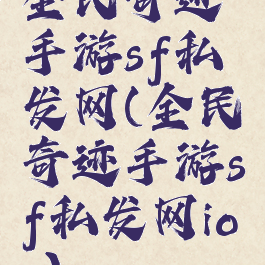 全民奇迹
手游sf私
发网(全民
奇迹手游s
f私发网io
)